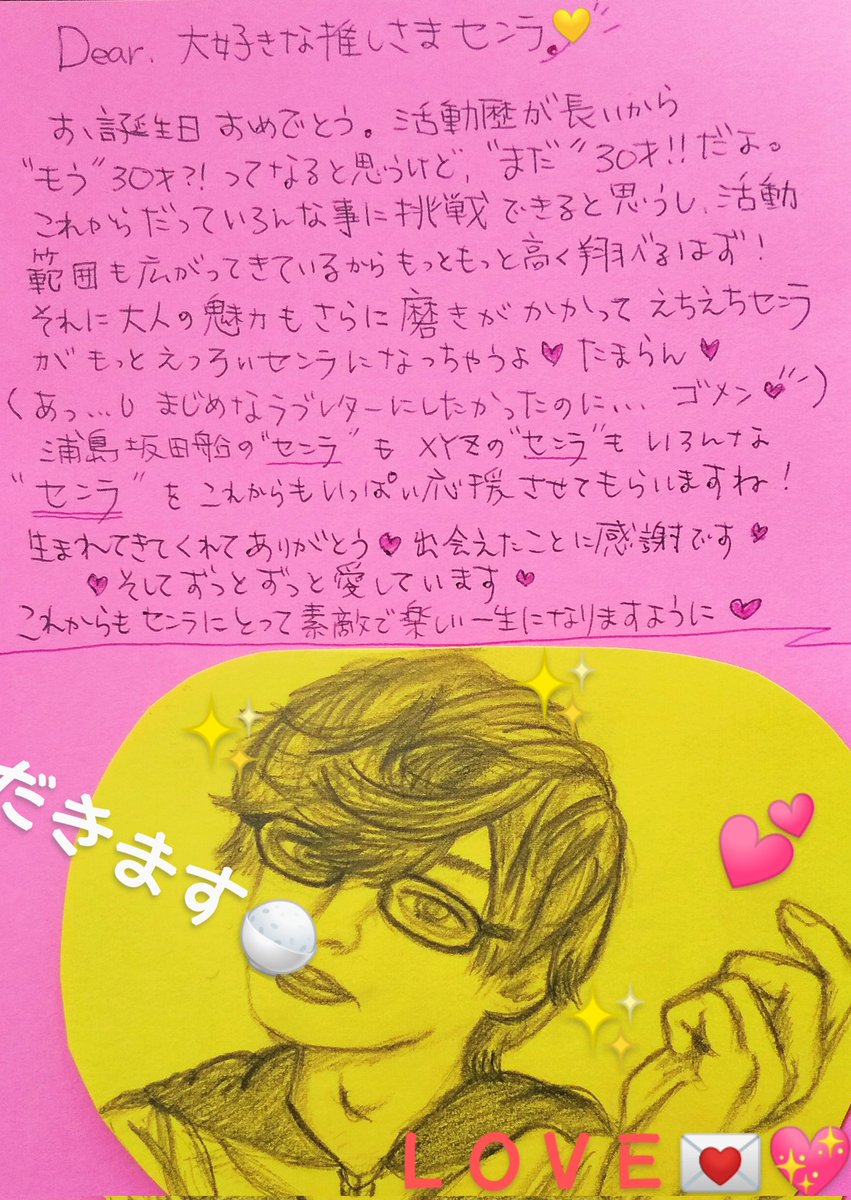 Dear. 大好きな推しさまセンラ.💛
お、誕生日おめでとう。活動歴が長いから
"もう"30才?!ってなると思うけど、"まだ"30才!!だよ。
これからだっていろんな事に挑戦できると思うし、活動
範囲も広がってきているからもっともっと高く翔べるはず!
それに大人の魅力もさらに磨きがかかってえちえちセンラ
がもっとえっろぃセンラになっちゃうよ♥たまらん♥
(あっ…しまじめなラブレターにしたかったのに… ゴメン♥)
浦島坂田船の"センラ"もXYZの"センラ"もいろんな
"センラ"をこれからもいっぱい応援させてもらいますね!
生まれてきてくれてありがとう♥出会えたことに感謝です♥
♥そしてずっとずっと愛しています♥
これからもセンラにとって素敵で楽しい一生になりますように♥
だきます
LOVE💌💖